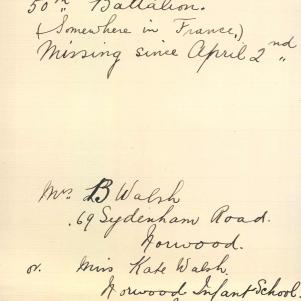 50th Battalion.
(Somewhere in France,)
Missing since April 2nd "
Mrs B Walsh
.69 Sydenham Road.
Norwood.
or. Miss Kate Walsh.
Norwood Infant School.